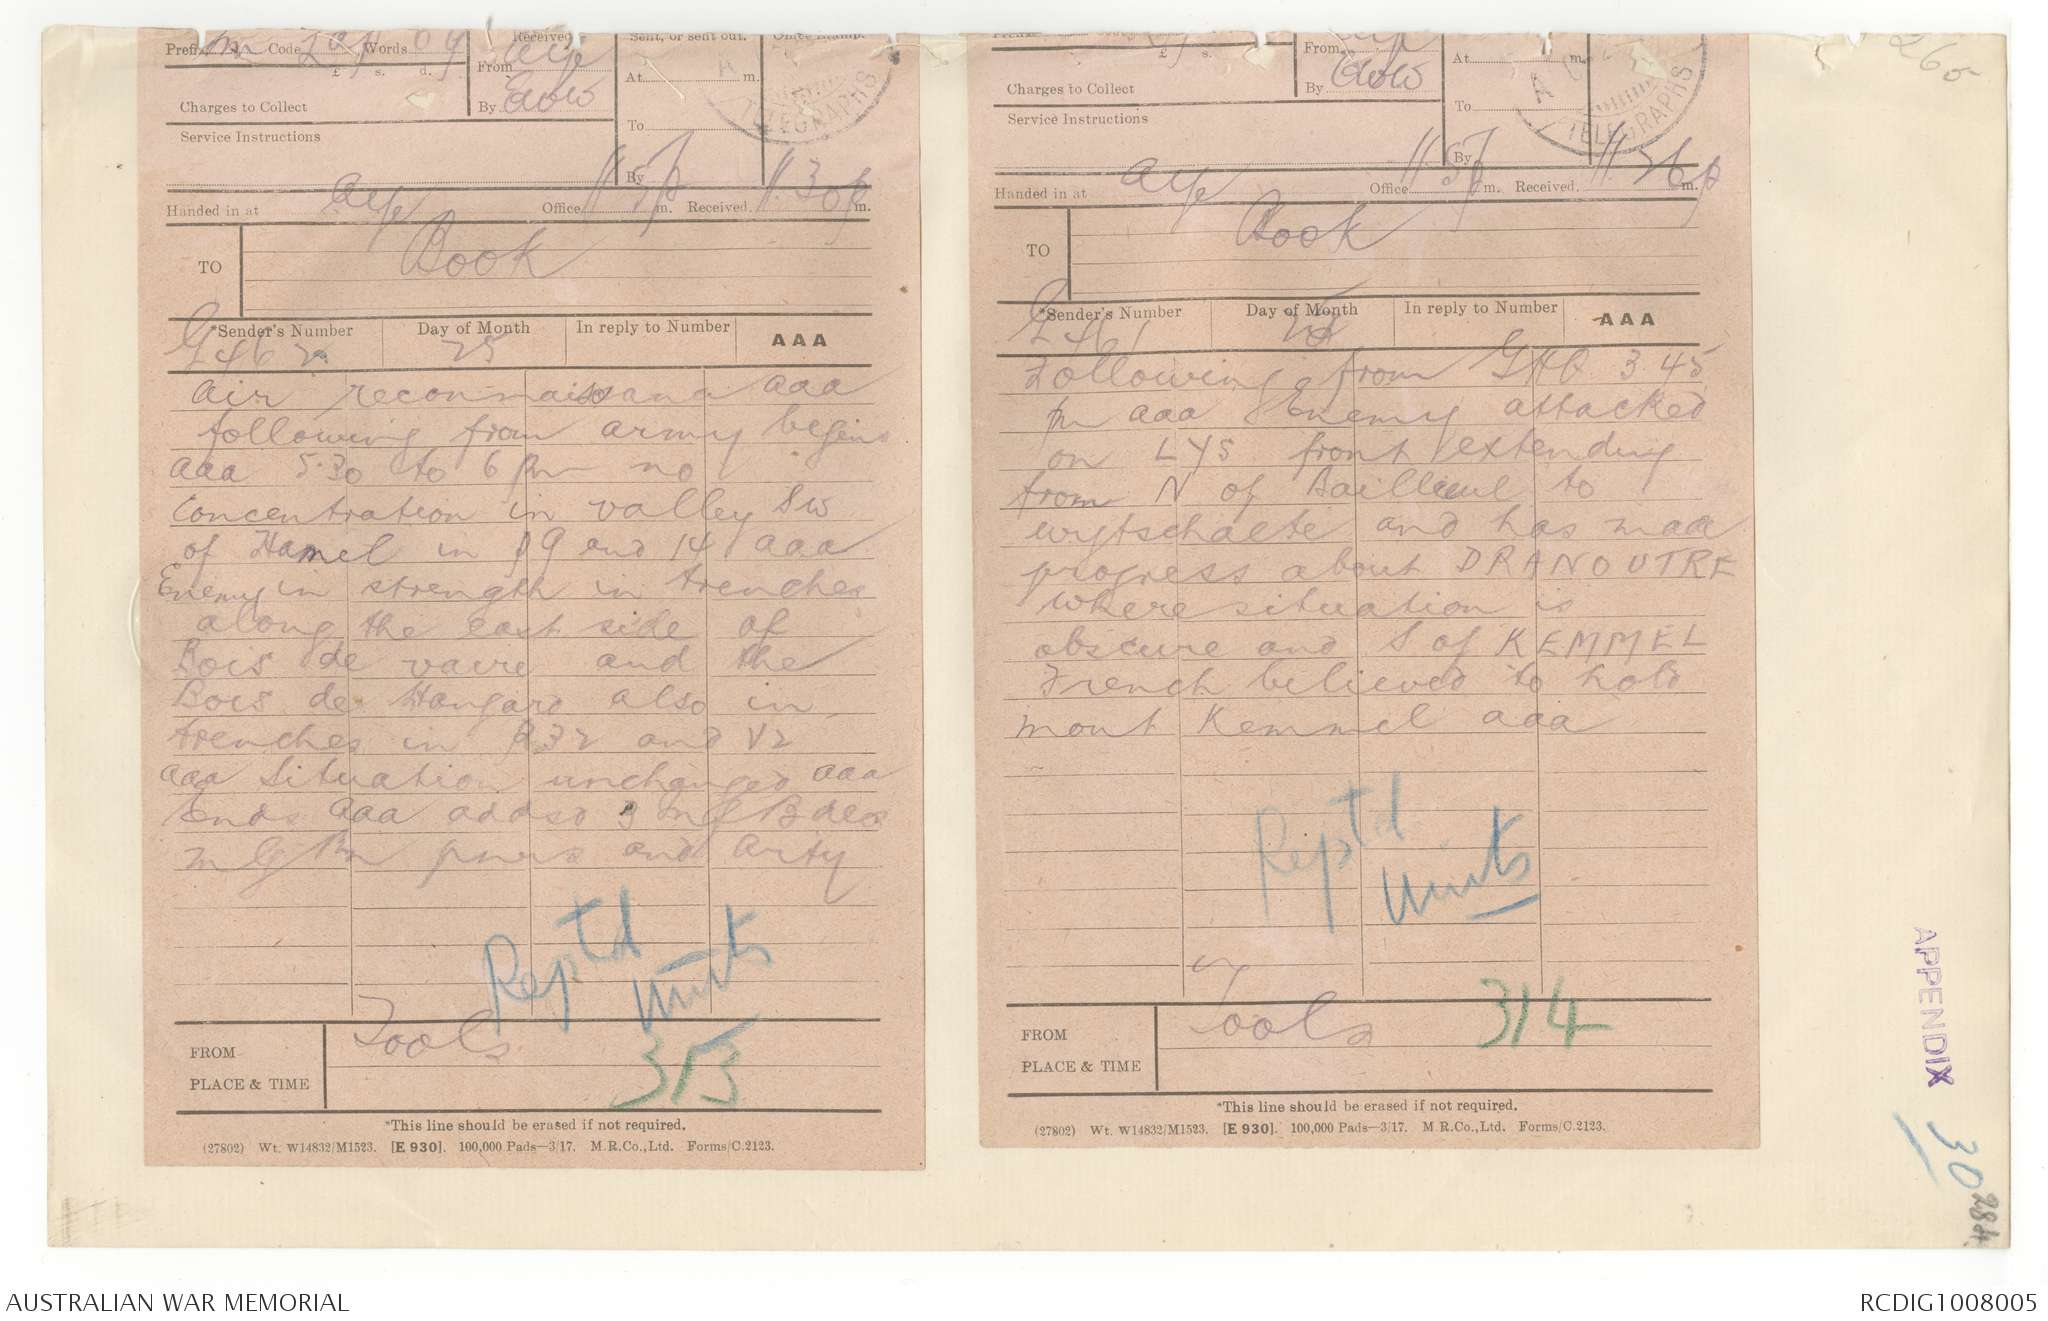 Prefix Sm Code Words
£ s. d.
Received
From Aye
By
Charges to Collect
Service Instructions
Sent, or sent out.
At m.
To
By
Office Stamp.
TELEGRAPHS
Handed in at Aye Office 11.57p m. Received 11.30p m.
TO Book
*Sender's Number Day of Month In reply to Number AAA
G462 25
Air reconnaissance aaa
following from army begins
aaa 5.30 to 6 pm no
concentration in valley SW
of Hamel in P9 and 14 aaa
Enemy in strength in trenches
along the east side of
Bois de vaire and the
Bois de Hangard also in
trenches in P32 and V2
aaa Situation unchanged aaa
Ends aaa addsd 3 Inf Bdes
M G Bn pnrs and Arty
Rept'd
units
FROM Tools
PLACE & TIME
313
*This line should be erased if not required.
(27802) Wt. W14832/M1523. [E 930]. 100,000 Pads—3/17. M.R.Co.,Ltd. Forms/C.2123.
£ s.
From Aye
By
Charges to Collect
Service Instructions
At m.
To
By
TELEGRAPHS
Handed in at Aye Office 11.5p m. Received 11.26p m.
TO Book
*Sender's Number Day of Month In reply to Number AAA
G461 25
Following from GHQ 3.45
pm aaa Enemy attacked
on LYS front extending
from N of Bailleul to
wytschaete and has made
progress about DRANOUTRE
where situation is
obscure and S of KEMMEL
French believed to hold
mont Kemmel aaa
Rept'd
units
FROM Tools
PLACE & TIME
314
*This line should be erased if not required.
(27802) Wt. W14832/M1523. [E 930]. 100,000 Pads—3/17. M R.Co.,Ltd. Forms/C.2123.
265
APPENDIX
30
284
AUSTRALIAN WAR MEMORIAL
RCDIG1008005